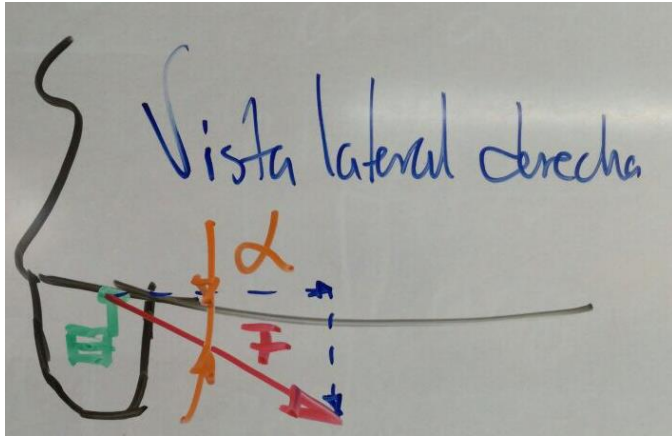 Vista lateral derecha
α
F